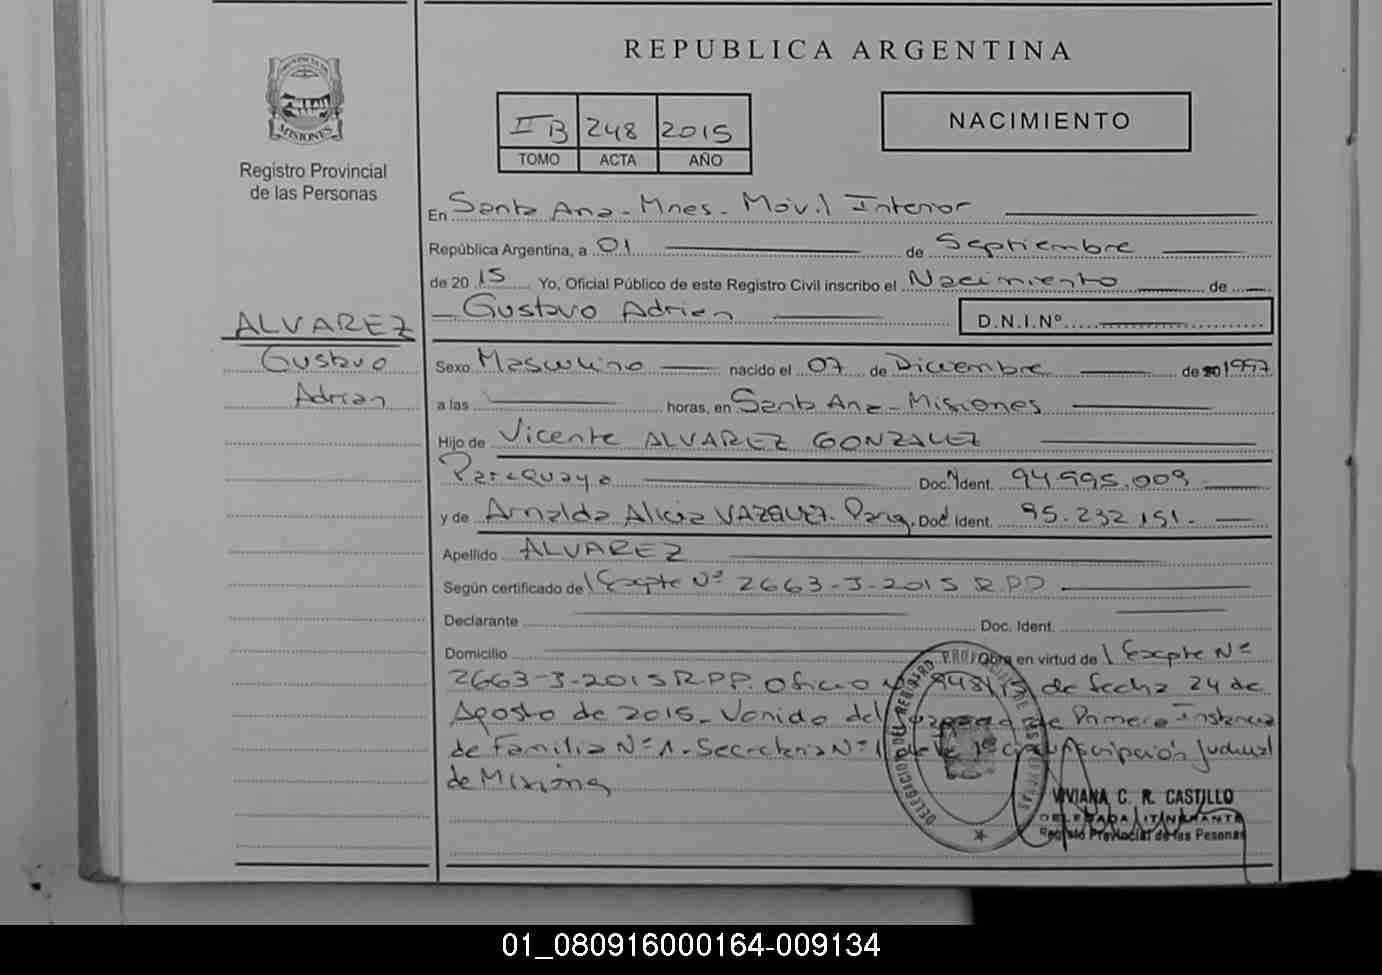 REPUBLICA ARGENTINA
PROVINCIA DE
MISIONES
Registro Provincial
de las Personas
II B 248 2015
TOMO ACTA AÑO
NACIMIENTO
En Santa Ana - Mnes - Móvil Interior
República Argentina, a 01 de Septiembre
de 2015 Yo, Oficial Público de este Registro Civil inscribo el Nacimiento de
Gustavo Adrian D.N.I.Nº
ALVAREZ
Gustavo
Adrian
Sexo Masculino nacido el 07 de Diciembre de 1997
a las horas, en Santa Ana - Misiones
Hijo de Vicente ALVAREZ GONZALEZ
Paraguaya Doc. Ident. 94.995.009
y de Arnalda Alicia VAZQUEZ. Parag. Doc. Ident. 95.232.151.-
Apellido ALVAREZ
Según certificado del Expte Nº 2663-J-2015 R.PP
Declarante Doc. Ident.
Domicilio Obra en virtud del Expte Nº
2663-J-2015 R.PP. Oficio de fecha 24 de
Agosto de 2015. Venido del Juzgado de Primera Instancia
de Familia Nº 1. Secretaria Nº 1 de la 1º circunscripción Judicial
de Misiones
VIVIANA C. R. CASTILLO
DELEGADA ITINERANTE
Registo Provincial de las Pesonas
01_080916000164-009134